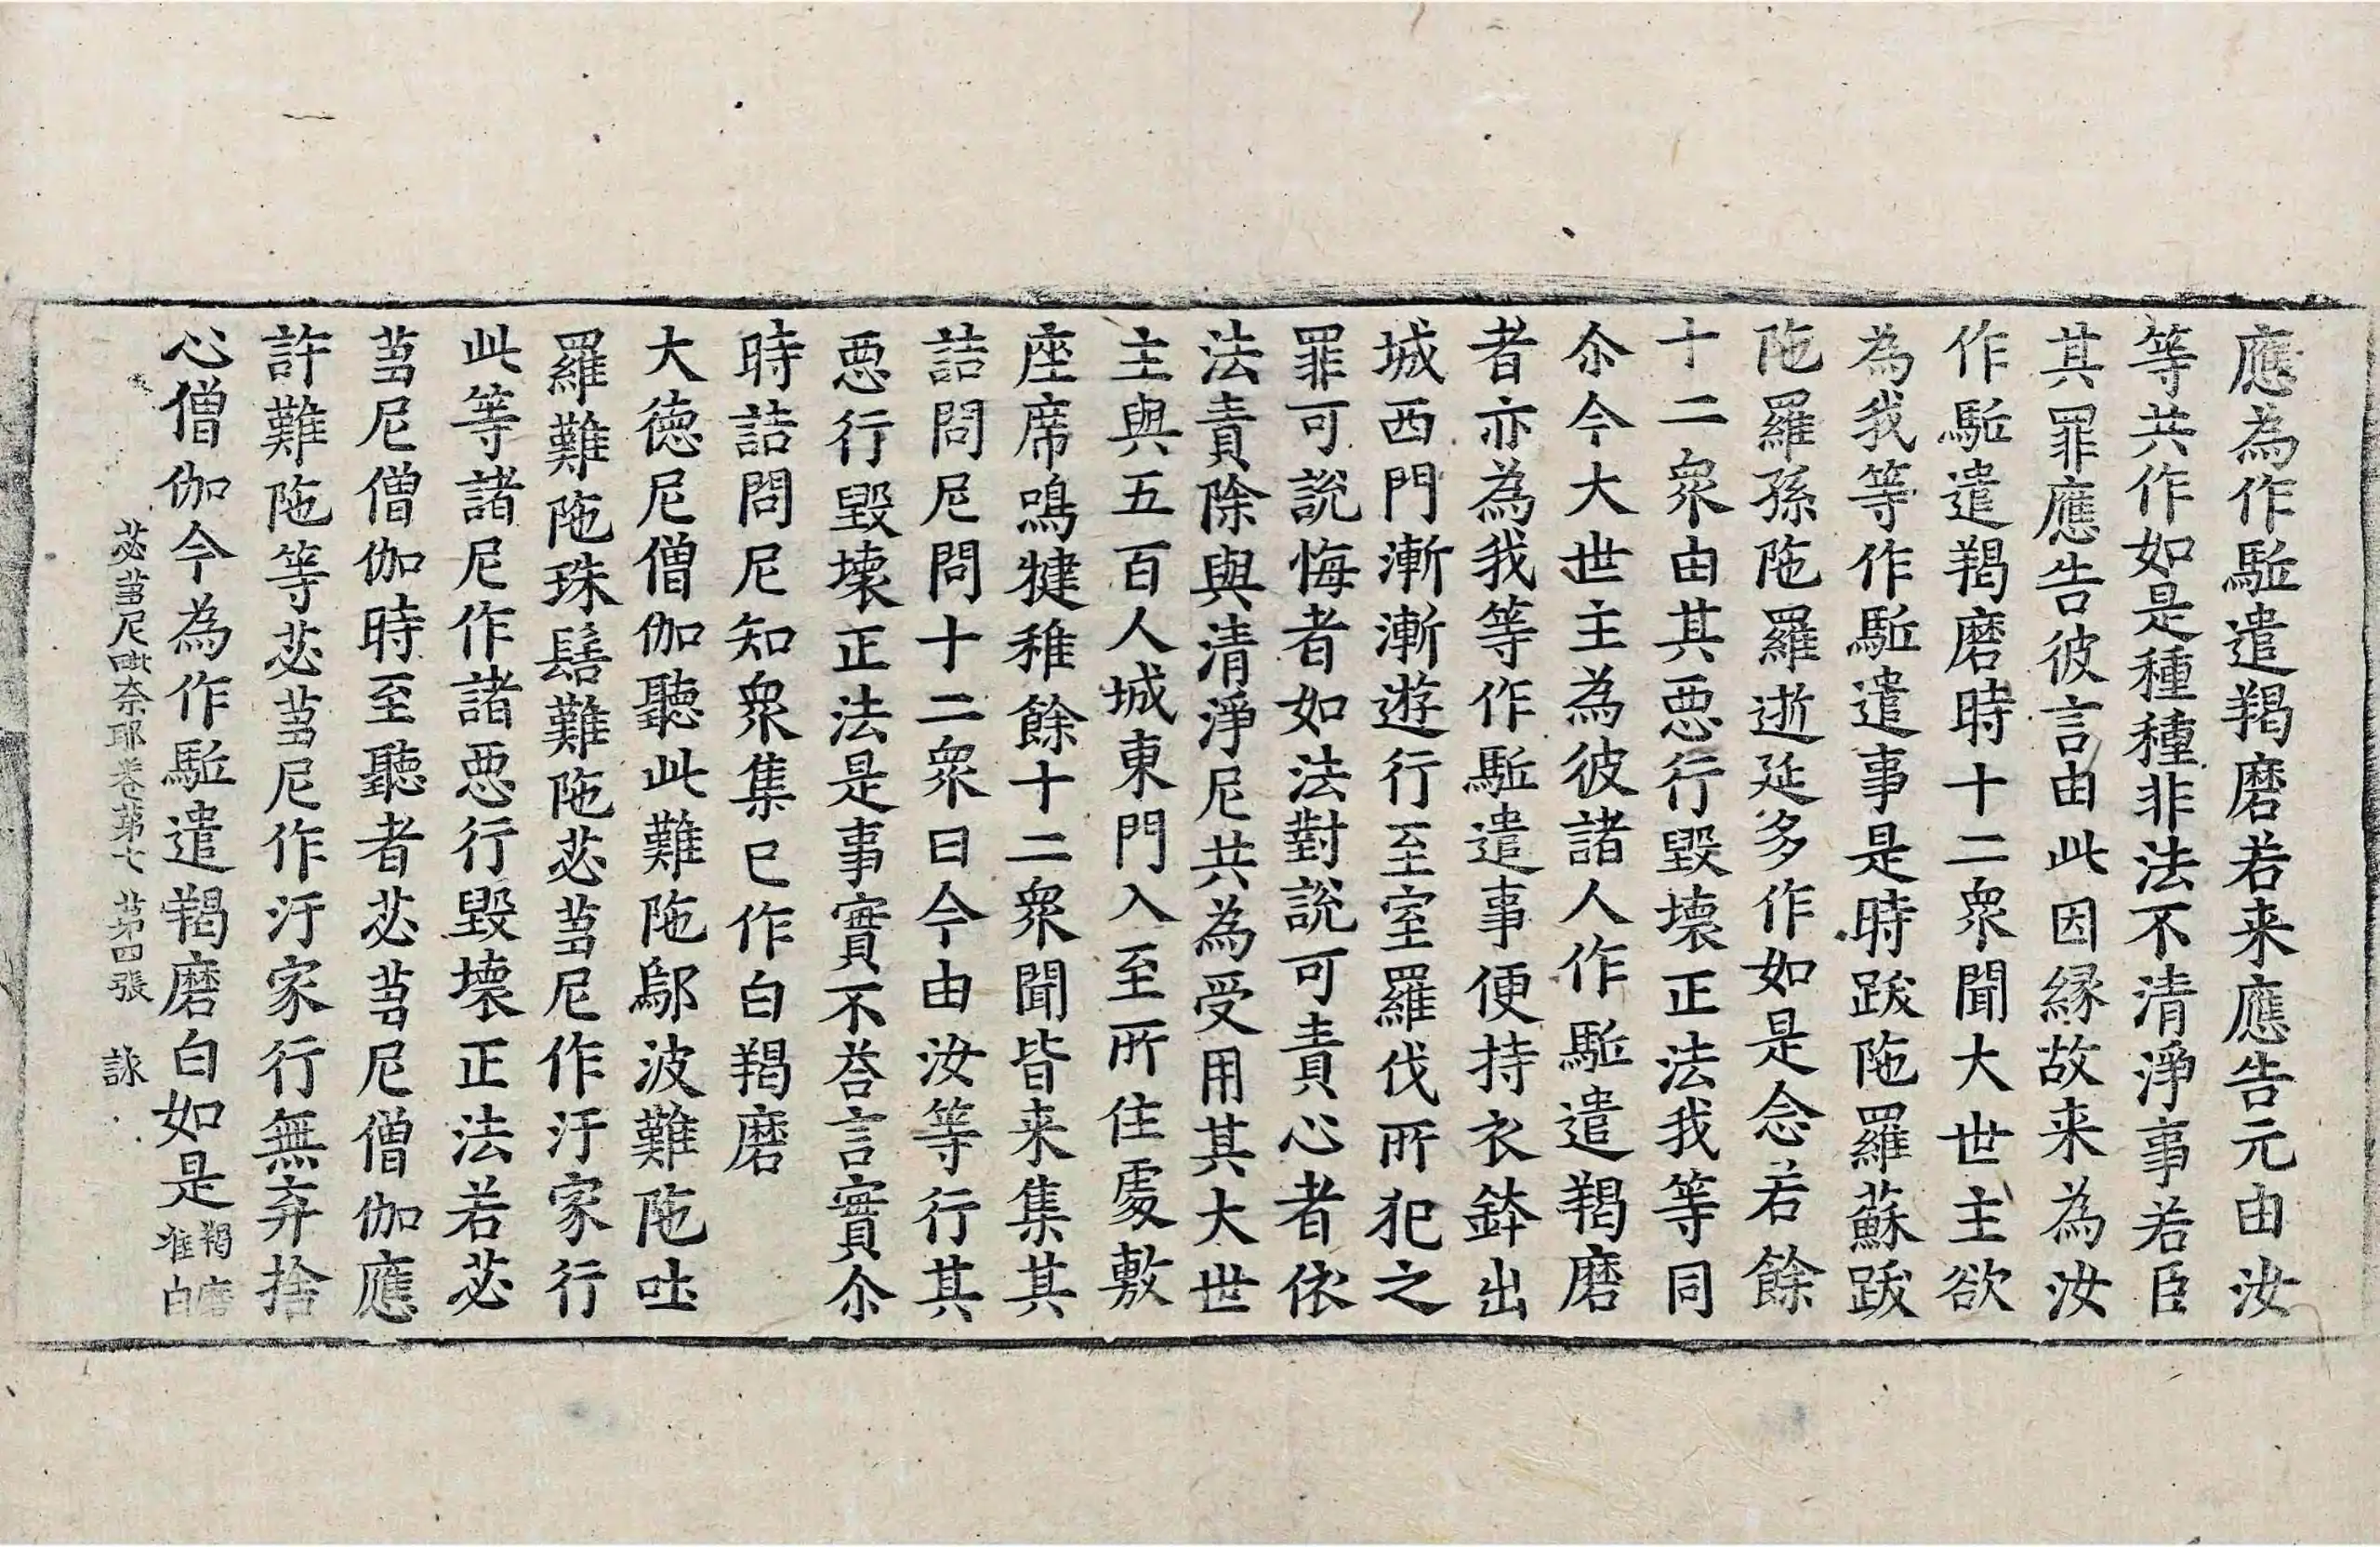 應為作駈遣羯磨若来應告元由汝
等共作如是種種非法不清淨事若臣
其罪應告彼言由此因縁故来為汝
作駈遣羯磨時十二衆聞大世主欲
為我等作駈遣事是時跋陁羅蘇跋
陁羅孫陁羅逝延多作如是念若餘
十二衆由其惡行毀壞正法我等同
尒今大世主為彼諸人作駈遣羯磨
者亦為我等作駈遣事便持衣鉢出
城西門漸漸遊行至室羅伐所犯之
罪可說悔者如法對說可責心者依
法責除與清淨尼共為受用其大世
主與五百人城東門入至所住處敷
座席鳴犍稚餘十二衆聞皆来集其
詰問尼問十二衆曰今由汝等行其
惡行毀壞正法是事實不荅言實尒
時詰問尼知衆集已作白羯磨
大德尼僧伽聽此難陁鄔波難陁吐
羅難陁珠髻難陁苾芻尼作汙家行
此等諸尼作諸惡行毀壞正法若苾
芻尼僧伽時至聽者苾芻尼僧伽應
許難陁等苾芻尼作汙家行無弃捨
心僧伽今為作駈遣羯磨白如是羯磨准白
苾芻尼毗奈耶卷第七 第四張 詠